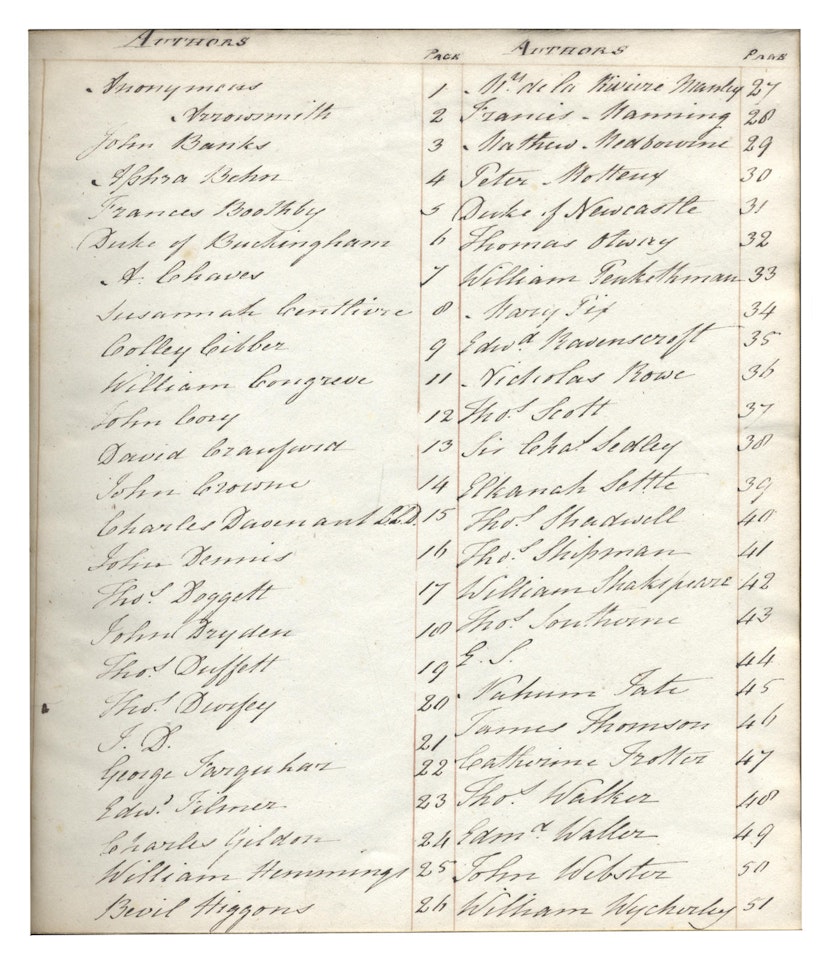 Authors Page
Anonymous 1
Arrowsmith 2
John Banks 3
Aphra Behn 4
Frances Boothby 5
Duke of Buckingham 6
A. Chaves 7
Susannah Centlivre 8
Colley Cibber 9
William Congreve 11
John Cory 12
David Craufurd 13
John Crowne 14
Charles Davenant LLD. 15
John Dennis 16
Thos. Doggett 17
John Dryden 18
Thos. Duffett 19
Thos. Durfey 20
J. D. 21
George Farquhar 22
Edwd. Filmer 23
Charles Gildon 24
William Hemmings 25
Bevil Higgons 26
Authors Page
Mrs. de la Riviere Manley 27
Francis Manning 28
Mathew Medbourne 29
Peter Motteux 30
Duke of Newcastle 31
Thomas Otway 32
William Penkethman 33
Mary Pix 34
Edwd. Ravenscroft 35
Nicholas Rowe 36
Thos. Scott 37
Sir Chas. Sedley 38
Elkanah Settle 39
Thos. Shadwell 40
Thos. Shipman 41
William Shakspeare 42
Thos. Southerne 43
E. S. 44
Nahum Tate 45
James Thomson 46
Catherine Trotter 47
Thos. Walker 48
Edmd. Waller 49
John Webster 50
William Wycherley 51